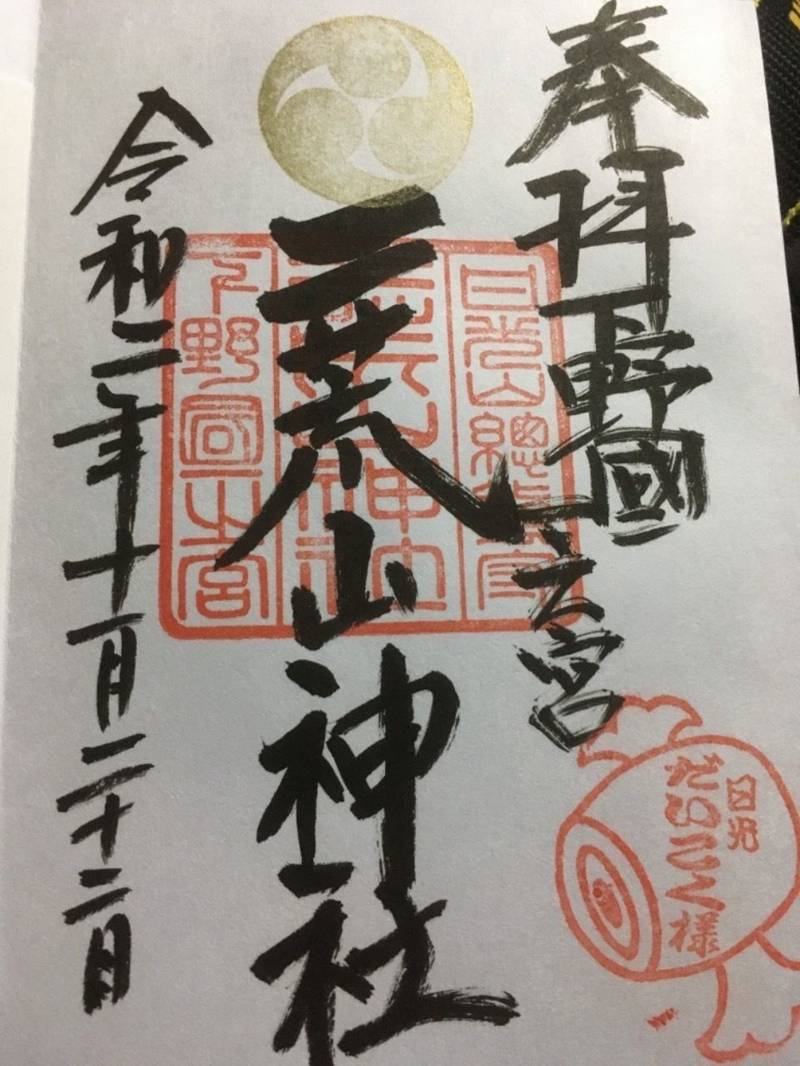 奉拝 下野國一之宮
二荒山神社
令和二年十一月二十二日
日光山總鎮守
二荒山神社
下野國一之宮
日光
だいこく様